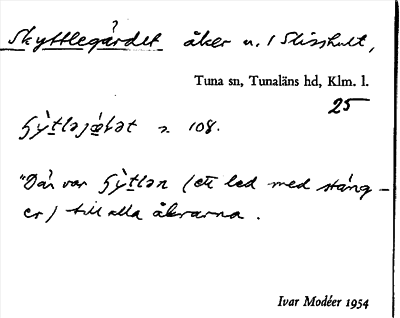 Skyttlegärdet åker u. / Slisshult,
Tuna sn, Tunaläns hd, Klm. l.
25
n 108.
"Där var (ett led med stäng-
er) till alla åkrarna.
Ivar Modéer 1954